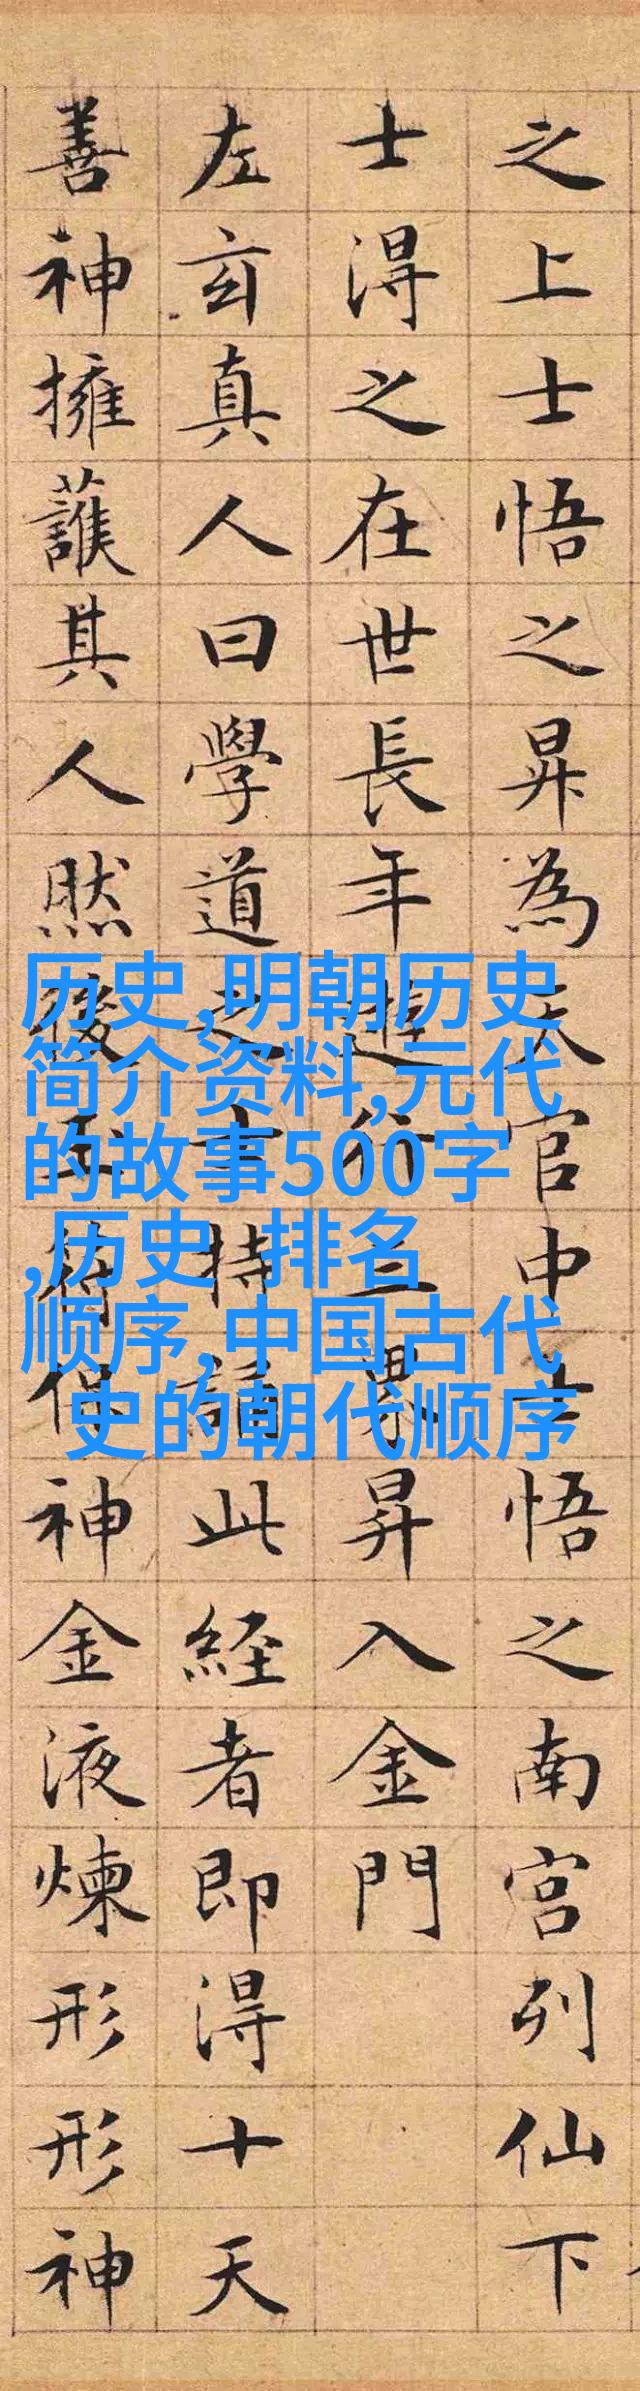 之上士悟之昇為天官中士悟之南宮列仙下
士得之在世長年遊行三界昇入金門
左玄真人曰學道之士持誦此經者即得十天
善神擁護其人然後玉符保神金液煉形形神
历史,明朝历史
简介资料,元代
的故事500字
,历史 排名
顺序,中国古代
史的朝代顺序